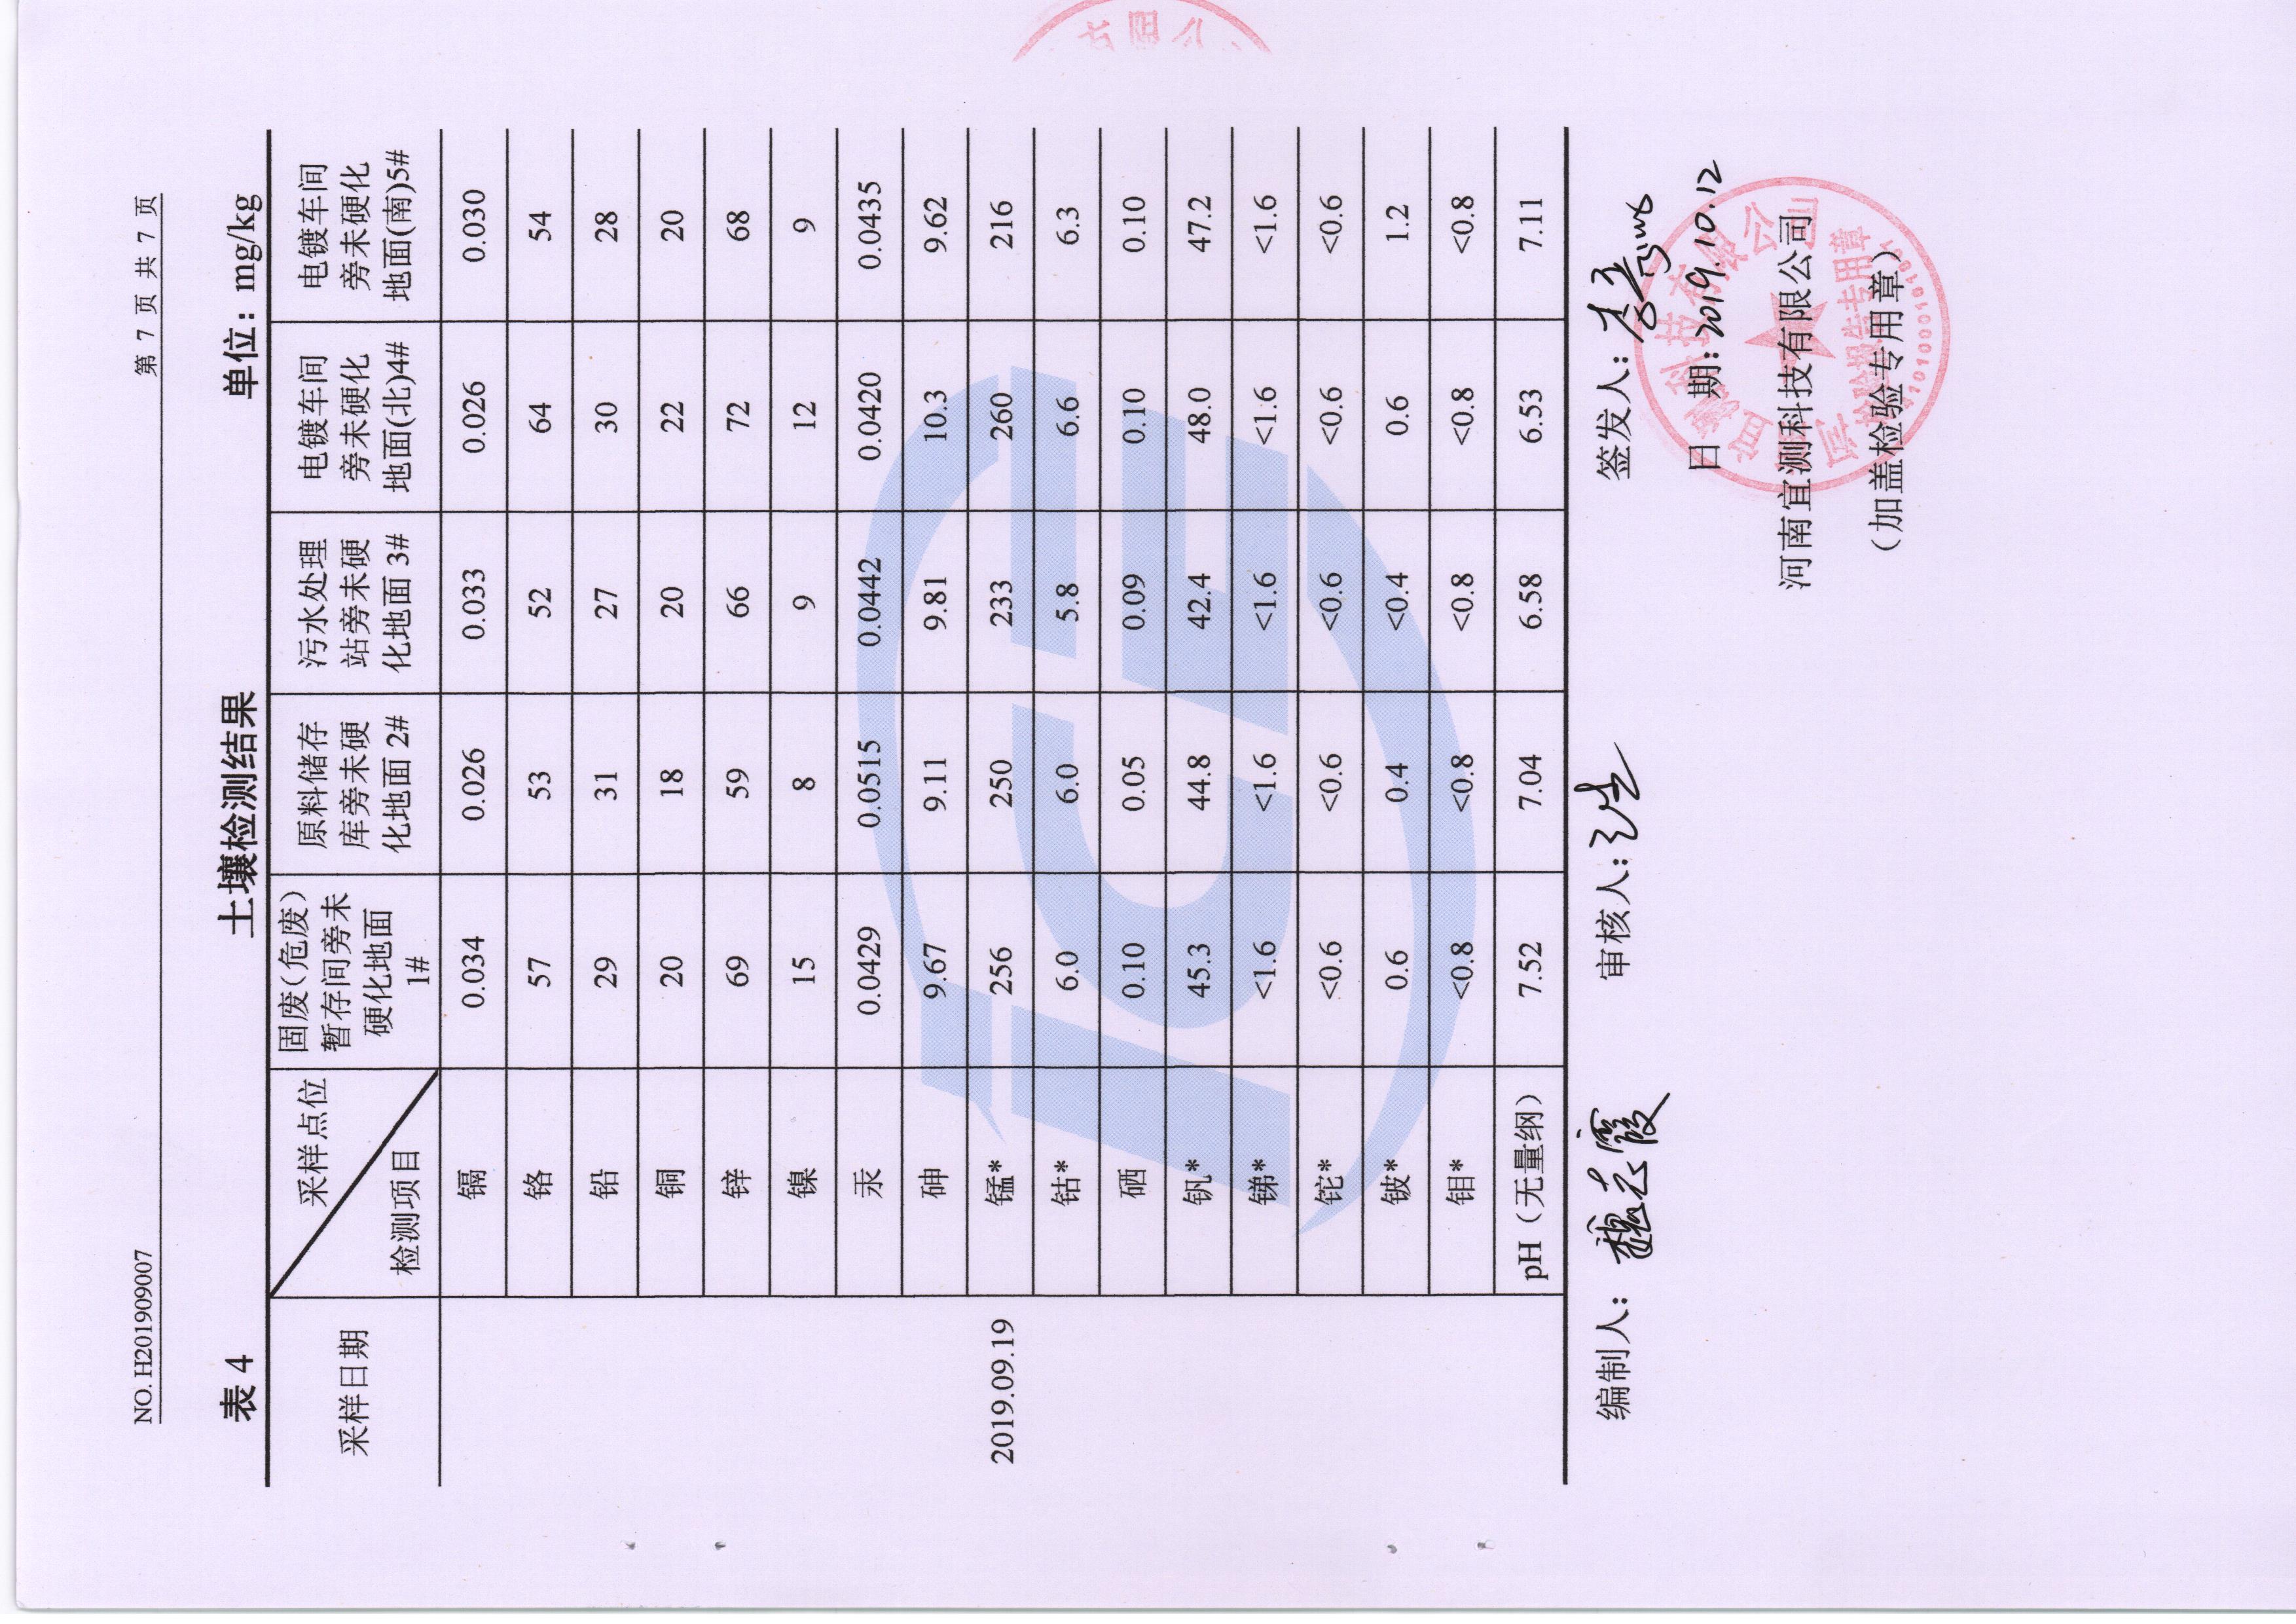 NO. H201909007 第 7 页 共 7 页
表 4 土壤检测结果 单位：mg/kg
采样日期 采样点位 检测项目 固废(危废)暂存间旁未硬化地面 1# 原料储存库旁未硬化地面 2# 污水处理站旁未硬化地面 3# 电镀车间旁未硬化地面(北)4# 电镀车间旁未硬化地面(南)5#
2019.09.19
镉 0.034 0.026 0.033 0.026 0.030
铬 57 53 52 64 54
铅 29 31 27 30 28
铜 20 18 20 22 20
锌 69 59 66 72 68
镍 15 8 9 12 9
汞 0.0429 0.0515 0.0442 0.0420 0.0435
砷 9.67 9.11 9.81 10.3 9.62
锰* 256 250 233 260 216
钴* 6.0 6.0 5.8 6.6 6.3
硒 0.10 0.05 0.09 0.10 0.10
钒* 45.3 44.8 42.4 48.0 47.2
锑* <1.6 <1.6 <1.6 <1.6 <1.6
铊* <0.6 <0.6 <0.6 <0.6 <0.6
铍* 0.6 0.4 <0.4 0.6 1.2
钼* <0.8 <0.8 <0.8 <0.8 <0.8
pH（无量纲） 7.52 7.04 6.58 6.53 7.11
编制人： 审核人： 签发人：
日 期：2019.10.12
河南宜测科技有限公司
（加盖检验专用章）